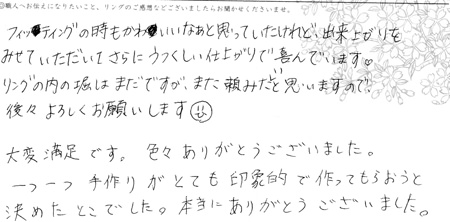 ◎職人へお伝えになりたいこと、リングのご感想などございましたらお聞かせくださいませ。
フィッティングの時もかわいいなぁと思っていたけれど、出来上がりを
みせていただいてさらにうつくしい仕上がりで喜んでいます。
リングの内の堀はまだですが、また頼みたいと思いますので、
後々よろしくお願いします
大変満足です。色々ありがとうございました。
一つ一つ手作りがとても印象的で作ってもらおうと
決めたとこでした。本当にありがとうございました。